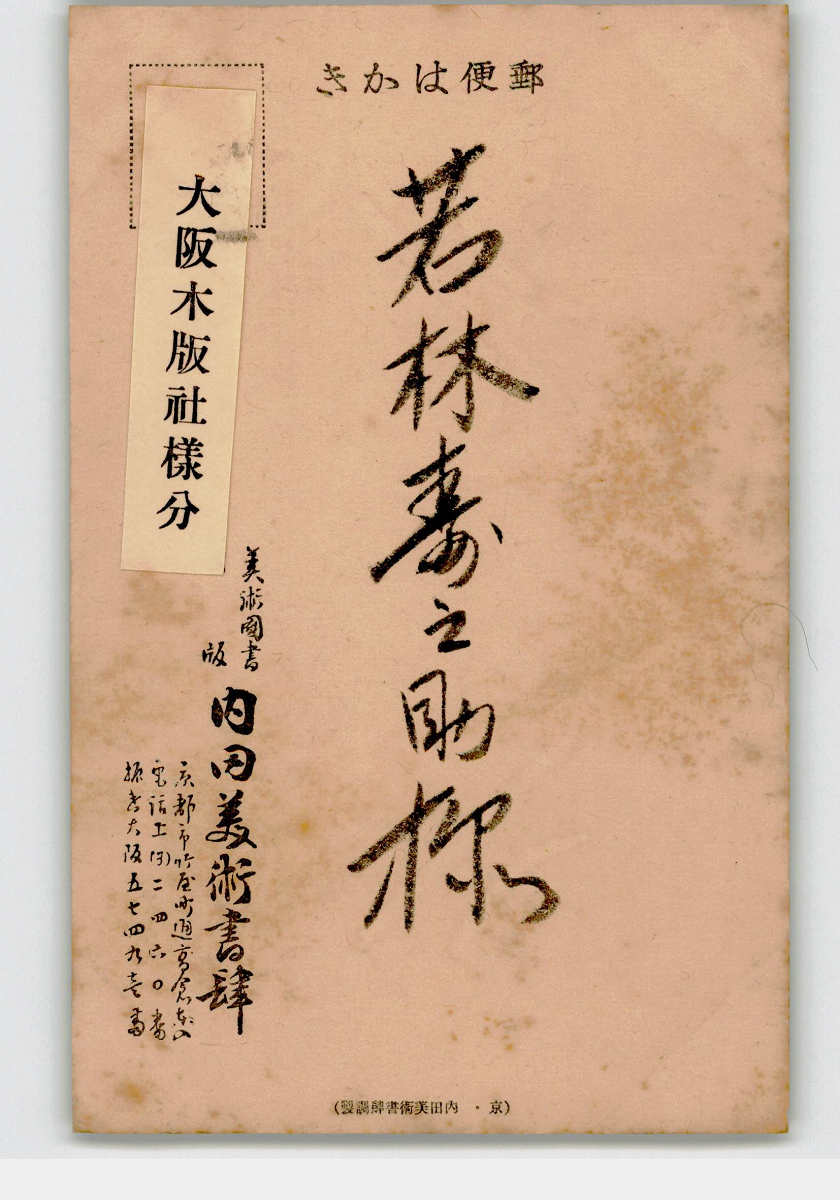 郵便はかき
若林寿之助様
大阪木版社様分
美術図書
版
内田美術書肆
京都市竹屋町通高倉東入
電話上(3)二四六〇番
振替大阪五七四九壱番
(京・内田美術書肆調製)